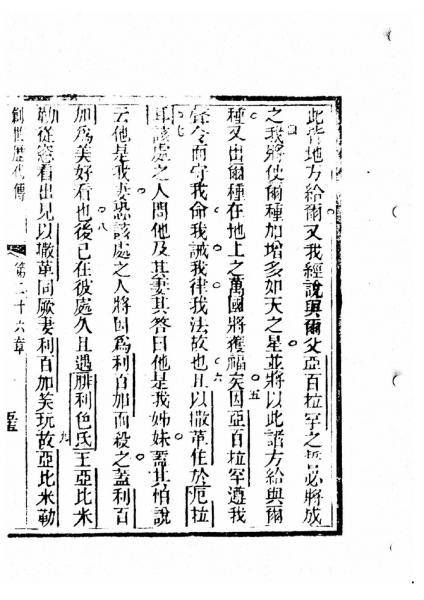 此皆地方給爾又我經說與爾父亞百拉罕之誓必將成
之我將使爾種加增多如天之星並將以此諸方給與爾
種又出爾種在地上之萬國將獲福矣因亞百拉罕遵我
令而守我命我誡我律我法故也且以撒革住於厄拉
耳該處之人問他及其妻其答曰他是我姊妹蓋其怕說
云他是我妻恐該處之人將因為利百加而殺之蓋利百
加為美好看也後已在彼處久且遇腓利色氐王亞比米
勒從窓看出見以撒革同厥妻利百加笑玩故亞比米勒
創世歷代傳
第二十六章
四
五
六
七
八
九